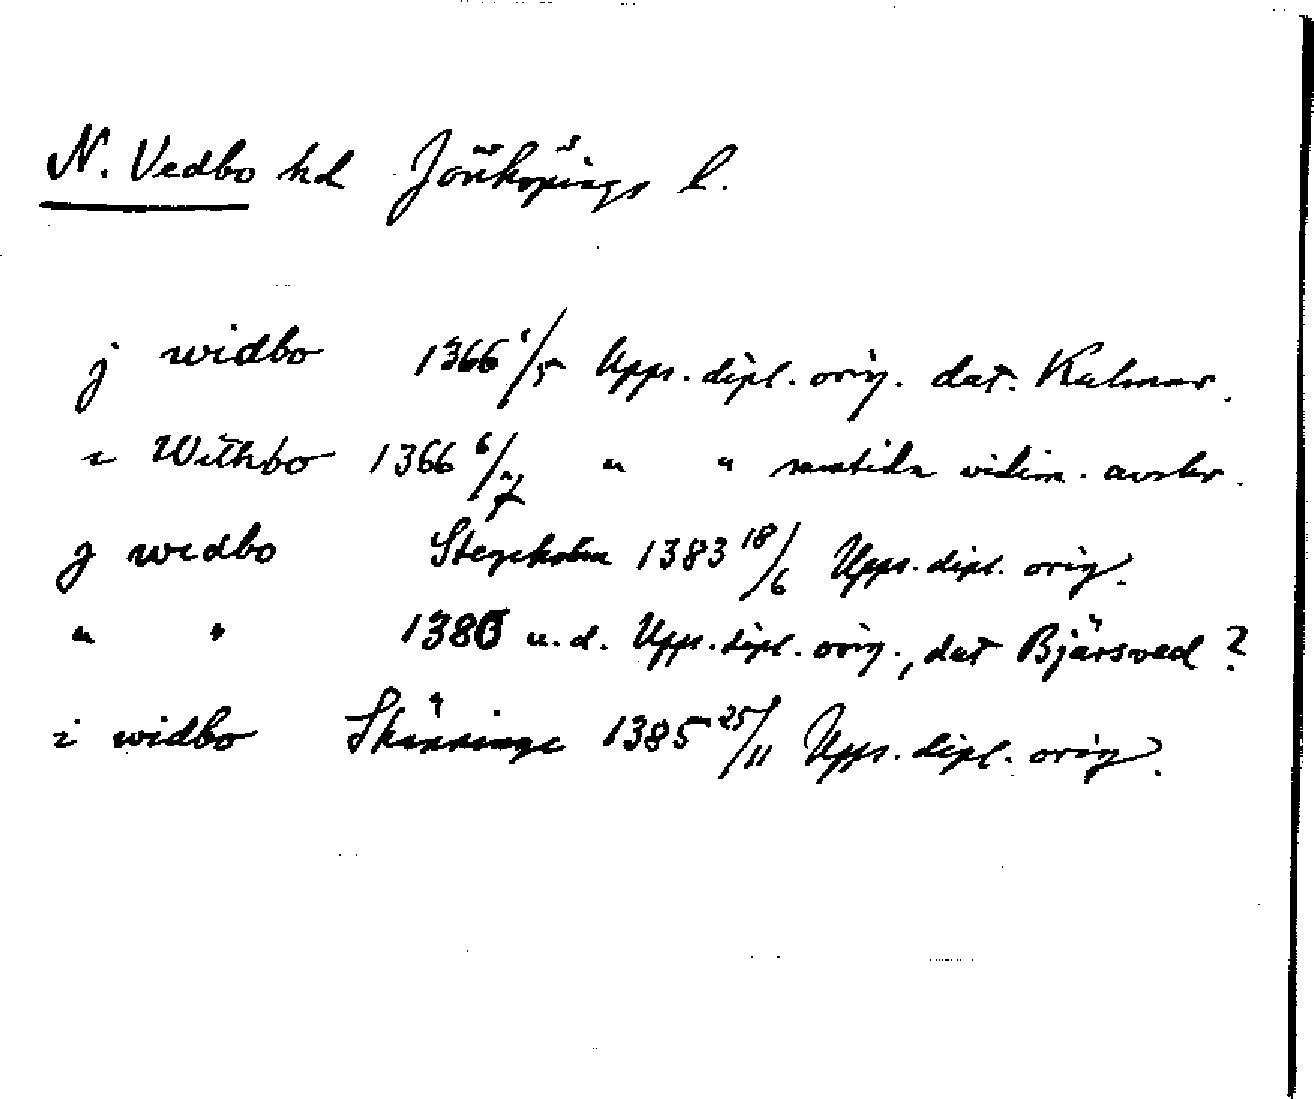 N. Vedbo hd Jönköpings l.
j widbo 1366 1/5 Upps. dipl. orig. dat. Kalmar.
i Withbo 1366 6/7 " " samtida vidim. avskr.
j wedbo Stegeholm 1383 18/6 Upps. dipl. orig.
" " 1383 u.d. Upps. dipl. orig., dat Bjärsved ?
i widbo Skänninge 1385 25/11 Upps. dipl. orig.